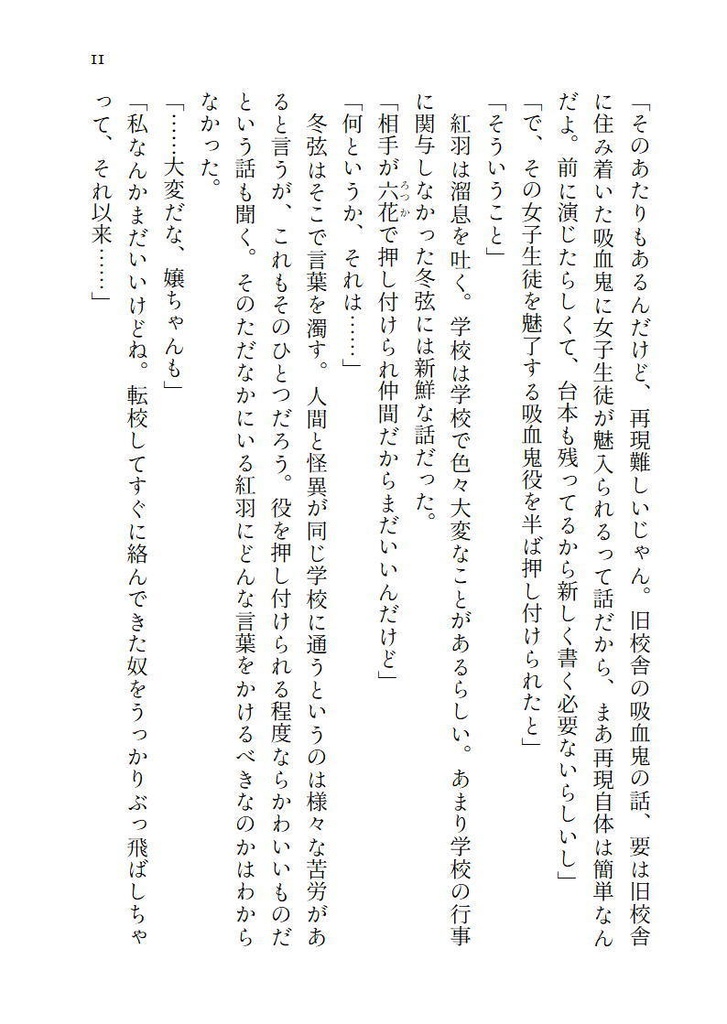 11
「そのあたりもあるんだけど、再現難しいじゃん。旧校舎の吸血鬼の話、要は旧校舎
に住み着いた吸血鬼に女子生徒が魅入られるって話だから、まあ再現自体は簡単なん
だよ。前に演じたらしくて、台本も残ってるから新しく書く必要ないらしいし」
「で、その女子生徒を魅了する吸血鬼役を半ば押し付けられたと」
「そういうこと」
　紅羽は溜息を吐く。学校は学校で色々大変なことがあるらしい。あまり学校の行事
に関与しなかった冬弦には新鮮な話だった。
「相手が六花ろつかで押し付けられ仲間だからまだいいんだけど」
「何というか、それは……」
　冬弦はそこで言葉を濁す。人間と怪異が同じ学校に通うというのは様々な苦労があ
ると言うが、これもそのひとつだろう。役を押し付けられる程度ならかわいいものだ
という話も聞く。そのただなかにいる紅羽にどんな言葉をかけるべきなのかはわから
なかった。
「……大変だな、嬢ちゃんも」
「私なんかまだいいけどね。転校してすぐに絡んできた奴をうっかりぶっ飛ばしちゃ
って、それ以来……」